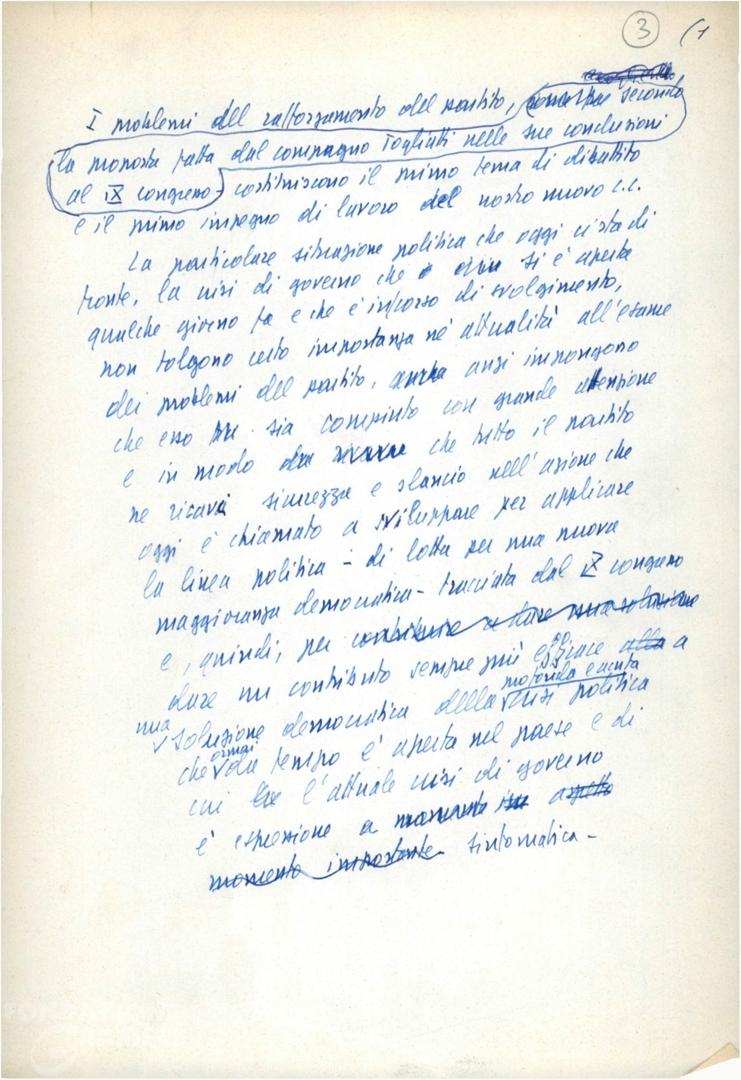 3 (1
I problemi dell rafforzamento del partito, secondo
la proposta fatta dal compagno Togliatti nelle sue conclusioni
al IX congresso - costituiscono il primo tema di dibattito
e il primo impegno di lavoro del nostro nuovo C.C.
La particolare situazione politica che oggi ci sta di
fronte, la crisi di governo che si è aperta
qualche giorno fa e che è in corso di svolgimento,
non tolgono certo importanza nè attualità all'esame
dei problemi del partito, anzi impongono
che esso sia compiuto con grande attenzione
e in modo che tutto il partito
ne ricavi sicurezza e slancio nell'azione che
oggi è chiamato a sviluppare per applicare
la linea politica - di lotta per una nuova
maggioranza democratica - tracciata dal IX congresso
e, quindi, per contribuire a dare una soluzione
dare un contributo sempre più efficace alla a
una soluzione democratica della profonda e acuta crisi politica
che ormai da tempo è aperta nel paese e di
cui l'attuale crisi di governo
è espressione a momento aspetto
momento importante sintomatica -
FONDAZIONE